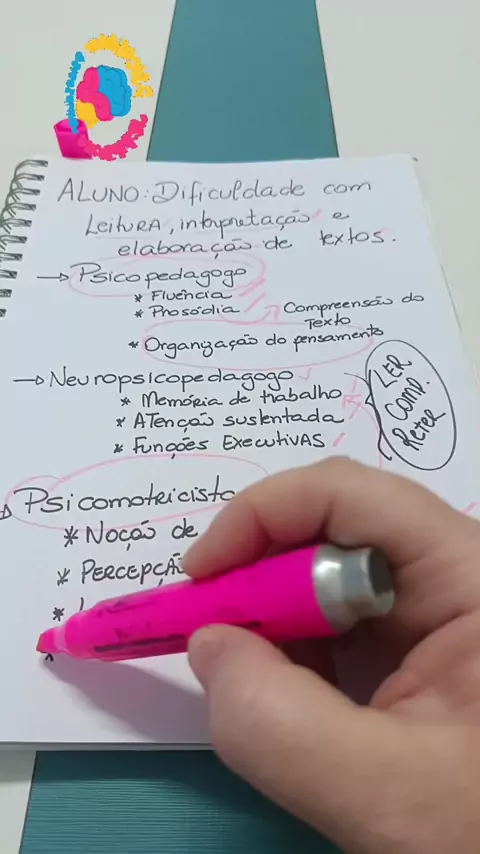 ALUNO: Dificuldade com
Leitura, interpretação e
elaboração de textos.
→ Psicopedagogo
* Fluência
* Prosódia → Compreensão do
Texto
* Organização do pensamento
→ Neuropsicopedagogo
* Memória de trabalho
* Atenção sustentada
* Funções Executivas
LER
Comp.
Reter
Psicomotricista
* Noção de
* PERCEPÇÃ
*